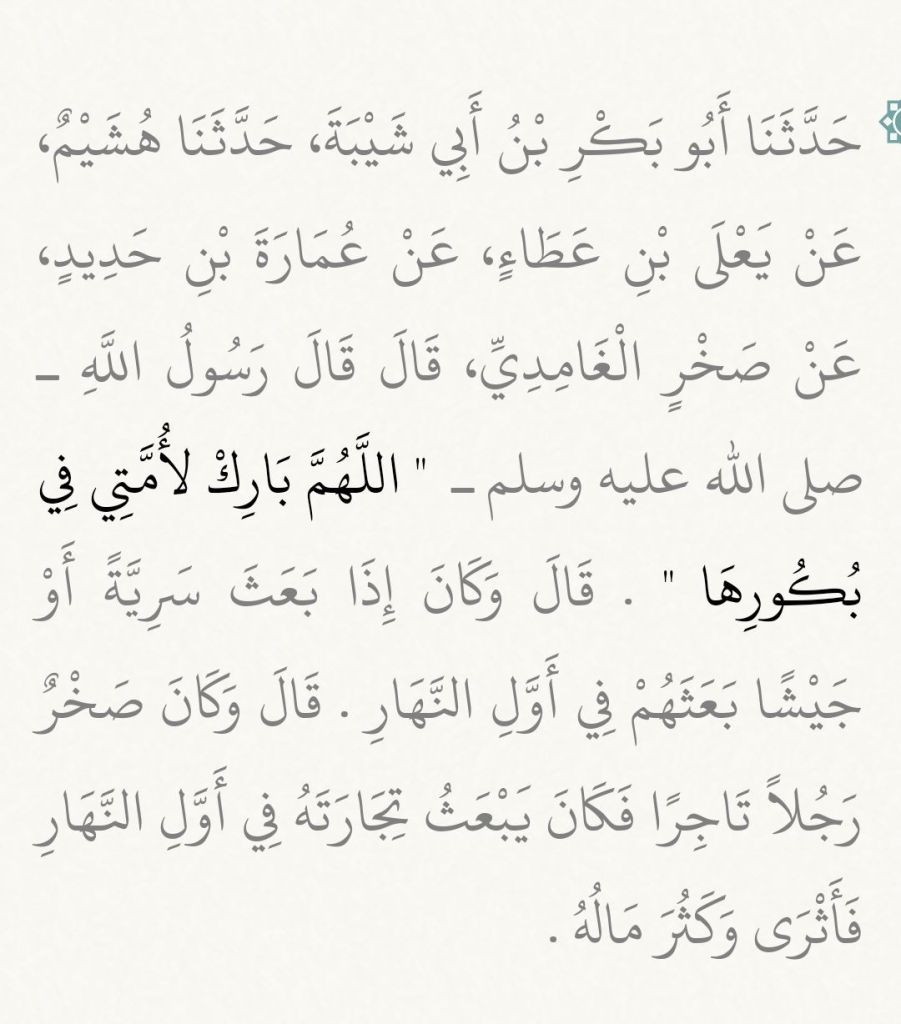 حَدَّثَنَا أَبُو بَكْرِ بْنُ أَبِي شَيْبَةَ، حَدَّثَنَا هُشَيْمٌ،
عَنْ يَعْلَى بْنِ عَطَاءٍ، عَنْ عُمَارَةَ بْنِ حَدِيدٍ،
عَنْ صَخْرٍ الْغَامِدِيِّ، قَالَ قَالَ رَسُولُ اللَّهِ ـ
صلى الله عليه وسلم ـ " اللَّهُمَّ بَارِكْ لأُمَّتِي فِي
بُكُورِهَا " . قَالَ وَكَانَ إِذَا بَعَثَ سَرِيَّةً أَوْ
جَيْشًا بَعَثَهُمْ فِي أَوَّلِ النَّهَارِ . قَالَ وَكَانَ صَخْرٌ
رَجُلاً تَاجِرًا فَكَانَ يَبْعَثُ تِجَارَتَهُ فِي أَوَّلِ النَّهَارِ
فَأَثْرَى وَكَثُرَ مَالُهُ .